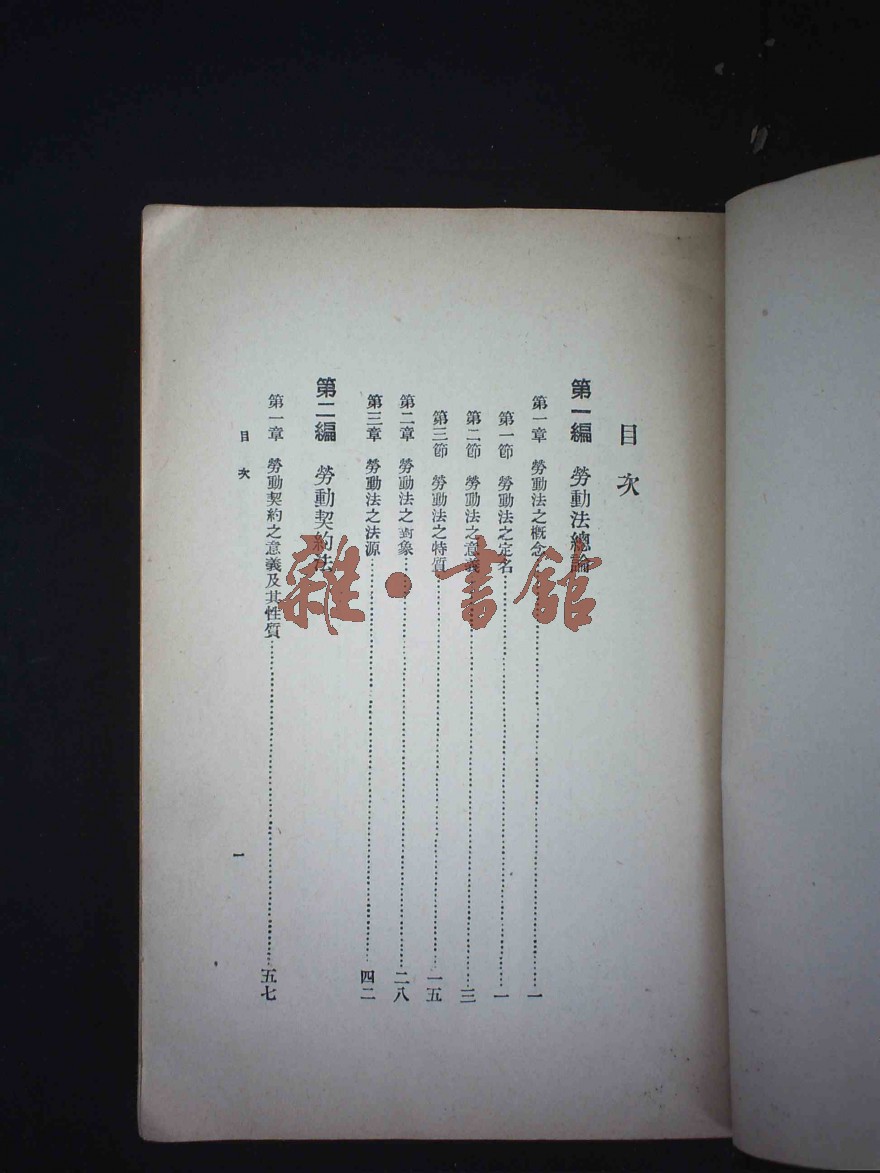 目次
第一編 勞動法總論
第一章 勞動法之概念……一
第一節 勞動法之定名……一
第二節 勞動法之意義……三
第三節 勞動法之特質……一五
第二章 勞動法之對象……二八
第三章 勞動法之法源……四二
第二編 勞動契約法
第一章 勞動契約之意義及其性質……五七
目次 一
雜·書館